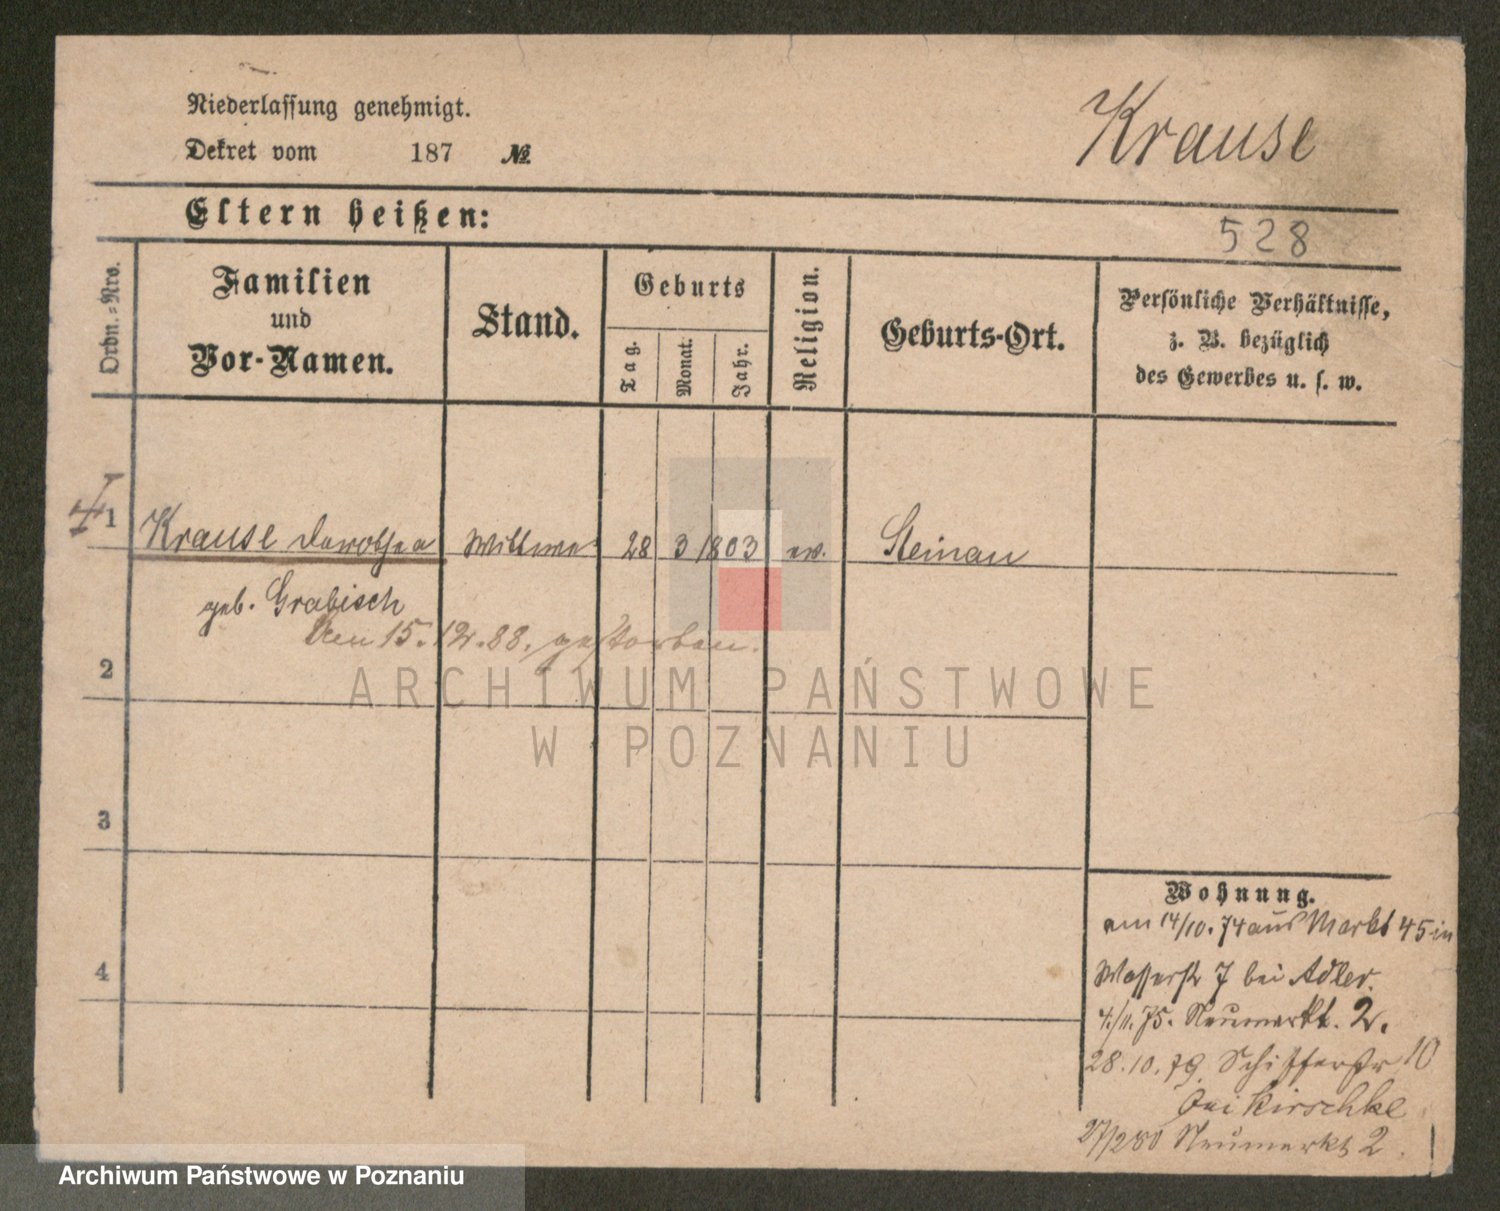 Niederlassung genehmigt.
Krause
Dekret vom 187 №
Eltern heißen:
528
Ordn.=Nro.
Familien
und
Vor-Namen.
Stand.
Geburts
Tag.
Monat.
Jahr.
Religion.
Geburts-Ort.
Persönliche Verhältnisse,
z. B. bezüglich
des Gewerbes u. s. w.
1 Krause Dorothea Wittwe 28 3 1803 ev. Steinau
geb. Grabisch
Den 15.12.88. gestorben.
2
3
4
Wohnung.
am 14/10.74 aus Markt 45 in
Wasserstr 7 bei Adler.
4./11.75. Neumarkt. 2.
28.10.79. Schifferstr 10
bei Kirschke
27/2 80 Neumarkt 2.
ARCHIWUM PAŃSTWOWE
W POZNANIU
Archiwum Państwowe w Poznaniu